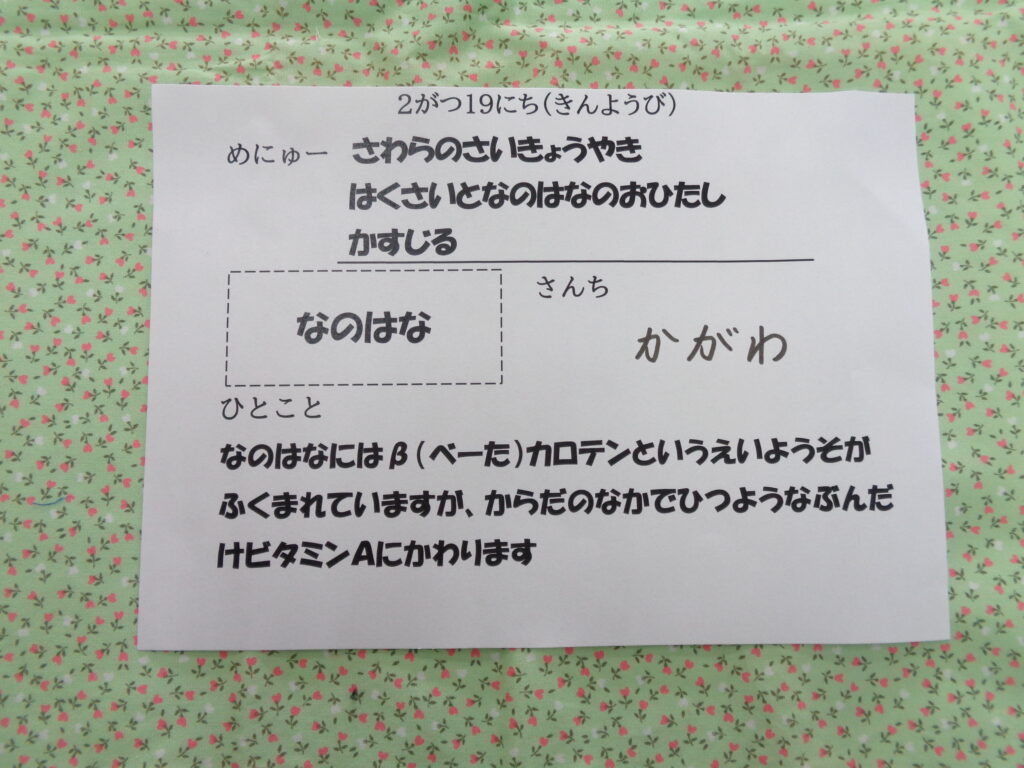 2がつ19にち(きんようび)
めにゅー さわらのさいきょうやき
はくさいとなのはなのおひたし
かすじる
なのはな
さんち
かがわ
ひとこと
なのはなにはβ(べーた)カロテンというえいようそが
ふくまれていますが、からだのなかでひつようなぶんだ
けビタミンAにかわります